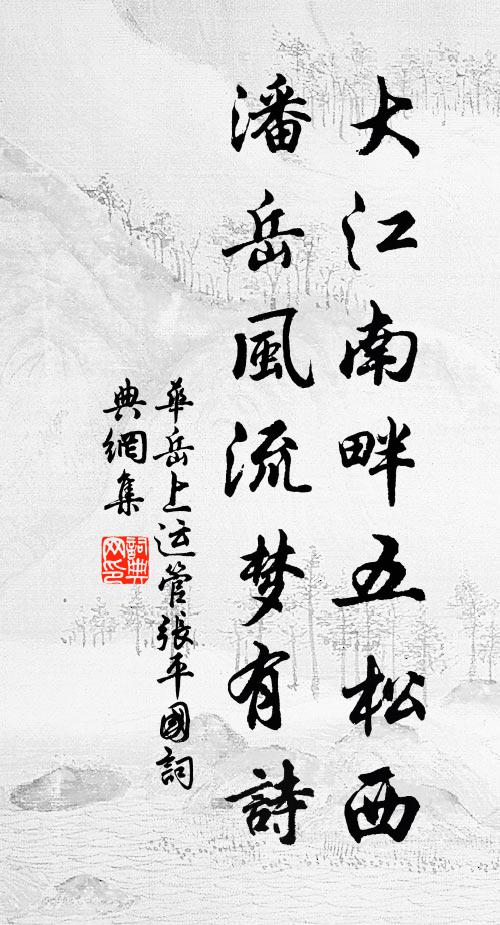 大江南畔五松西
潘岳風流梦有詩
華岳上运管張平國詞
典網集
詞典
网印